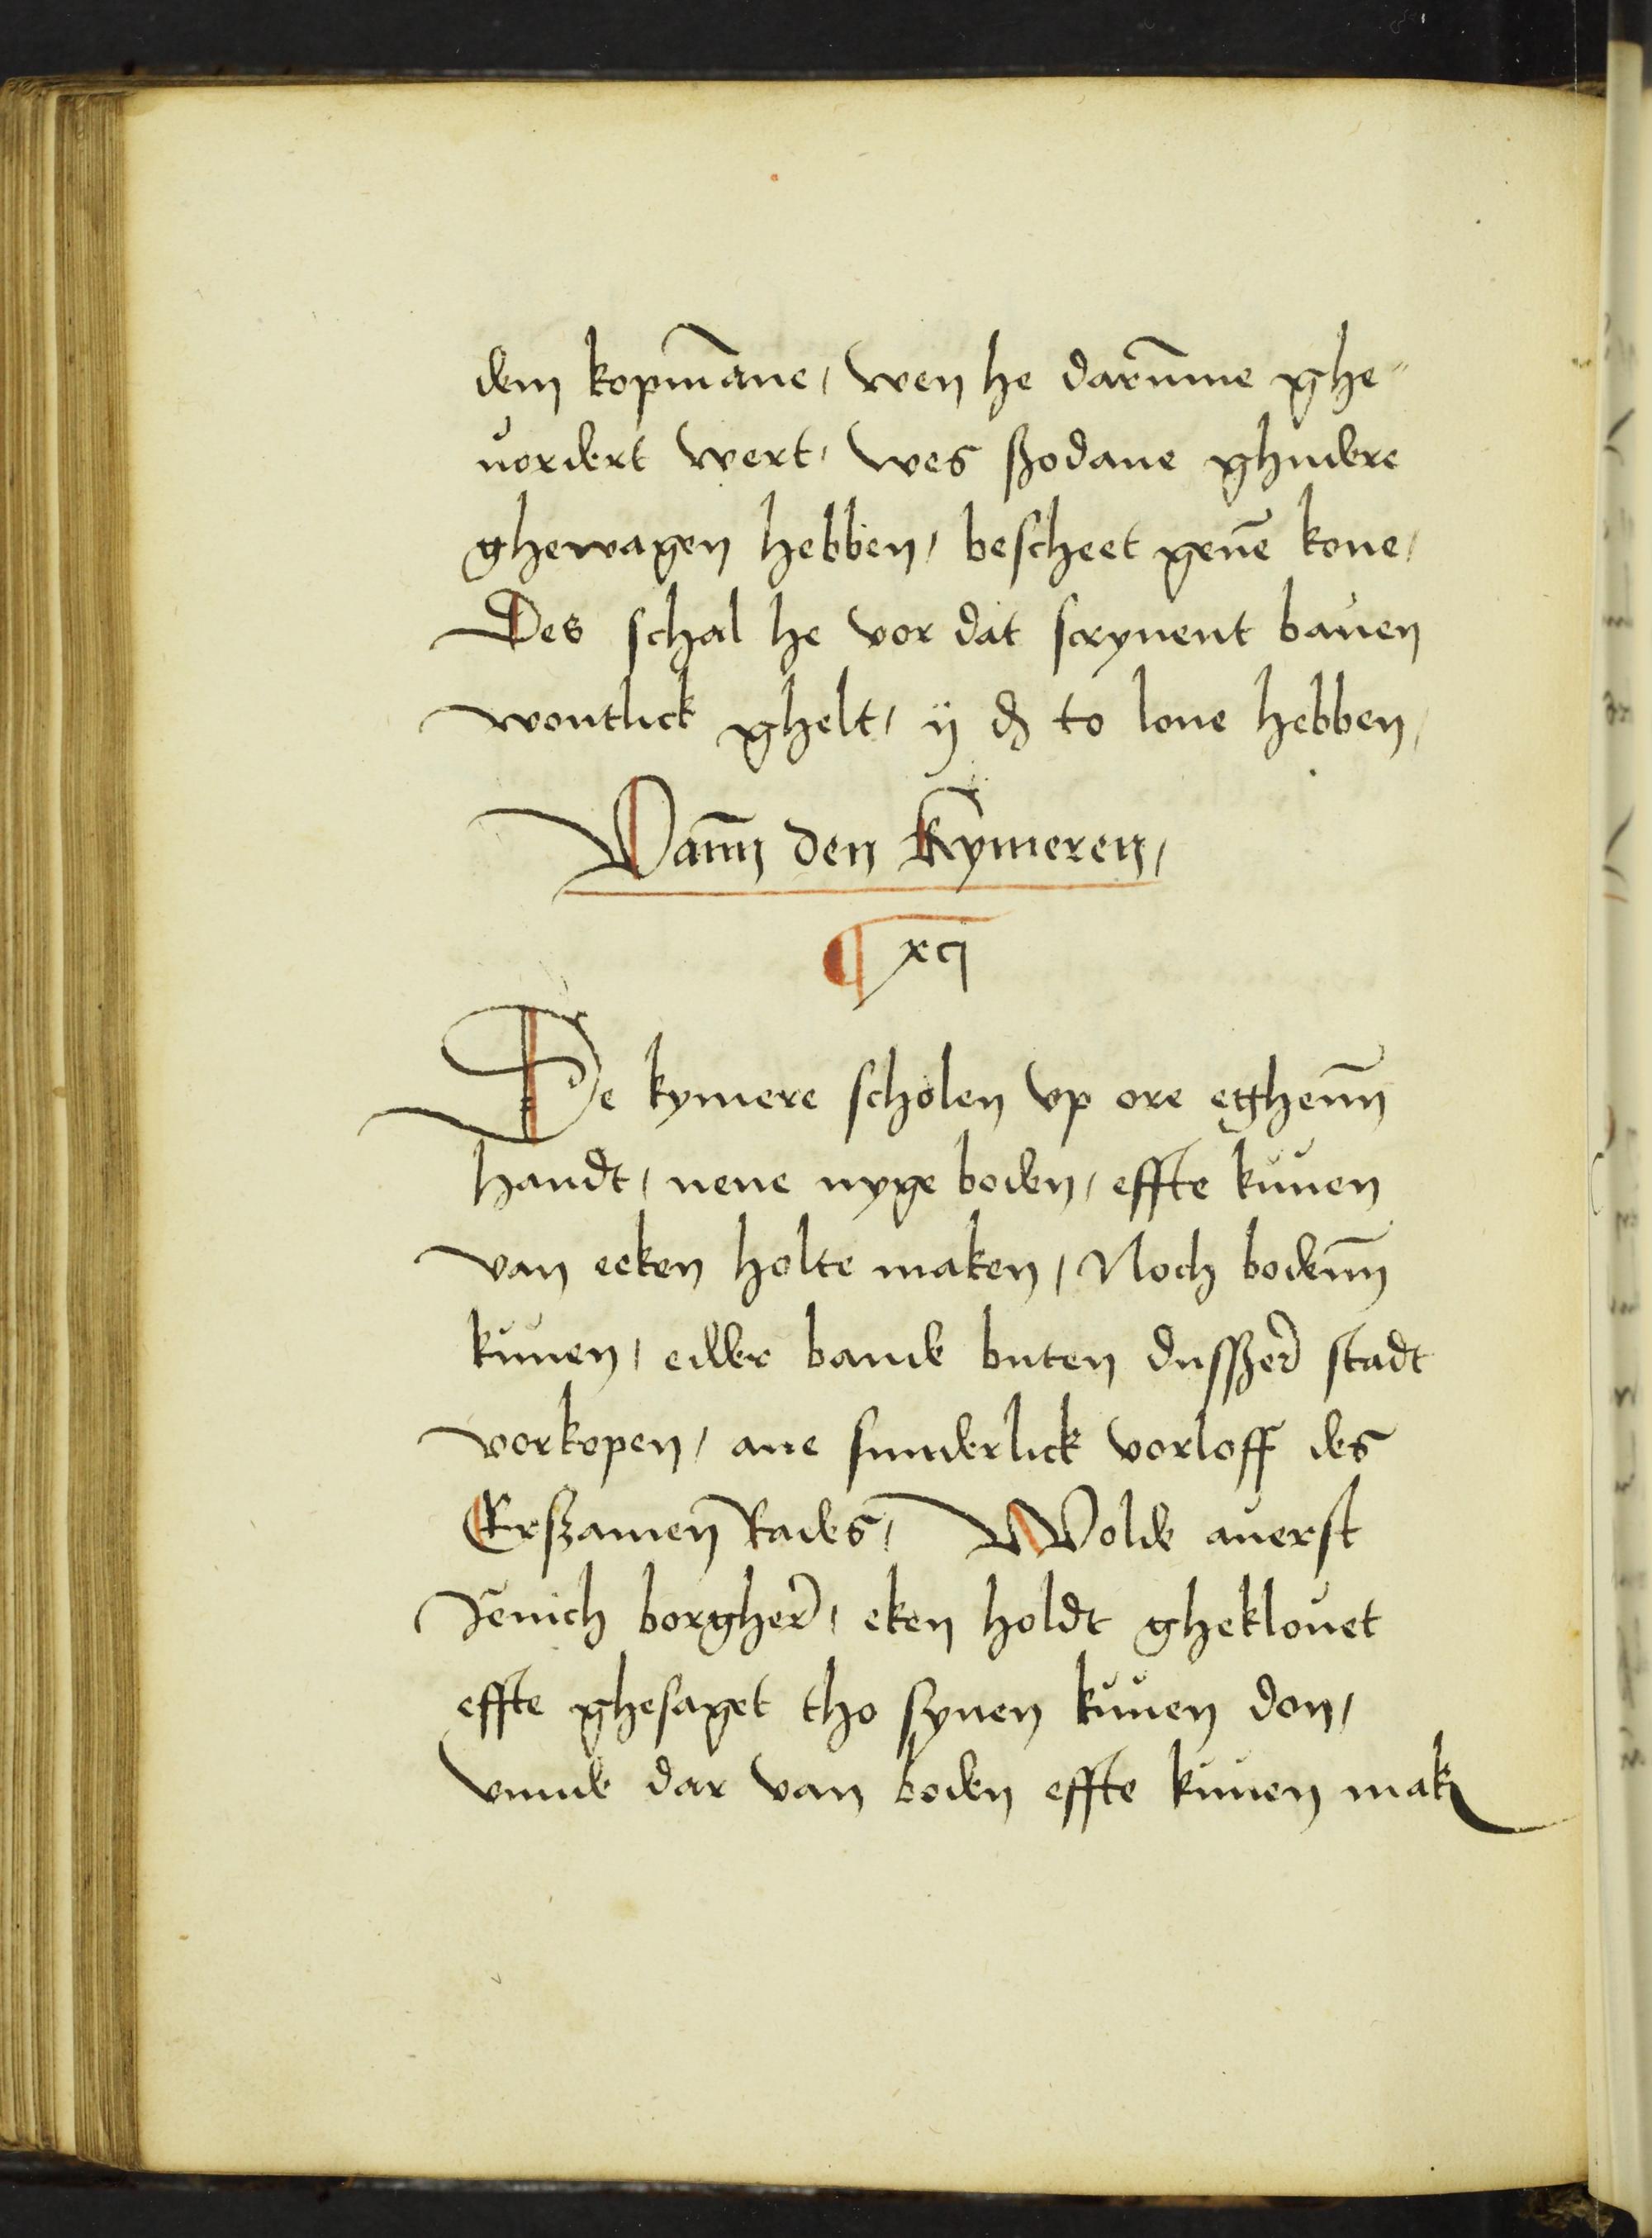 dem kopmāne, wen he darūmme ghe-
uordert wert, wes ßodane ghudere
ghewagen hebben, bescheet geuē kone,
Des schal he vor dat scryuent bauen
wontlick ghelt, ij ₰ to lone hebben,
Vann̄ den Kymeren,
¶ xcj
De kymere scholen vp ore eghenn̄
handt, nene nyge boden, effte kuuen
van eeken holte maken, Noch bodenn̄
kuuen, edder bande buten dusßer̄ stadt
vorkopen, ane sunderlick vorloff des
Erßamen̄ Rades, Wolde auerst
Jenich borgher̄, eken holdt gheklouet
effte ghesaget tho synen kuuen don,
vnnde dar van boden effte kuuen mak